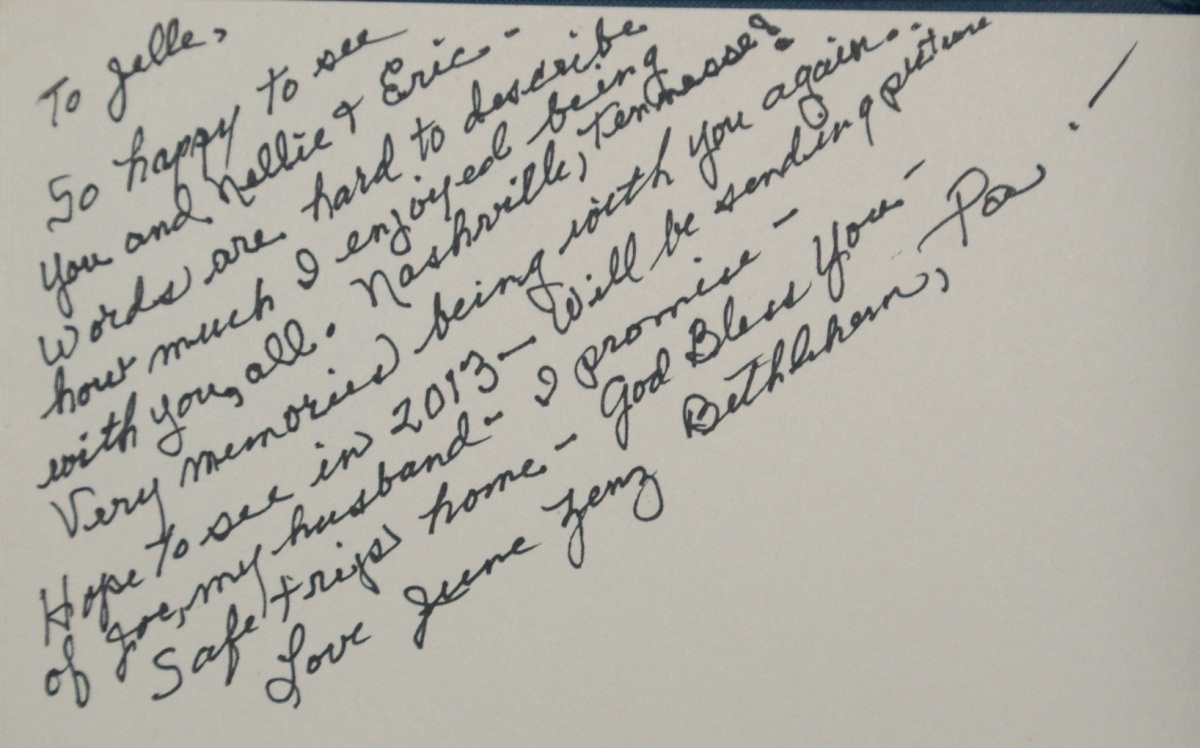 To Jelle,
So happy to see
you and Nellie & Eric -
words are hard to describe
how much I enjoyed being
with you, all. Nashville, Tennesse!
Very memories being with you again.
Hope to see in 2013 - Will be sending picture
of Joe, my husband - I promise -
Safe trips home - God Bless You -
Love June Zenz Bethlehem, Pa. /